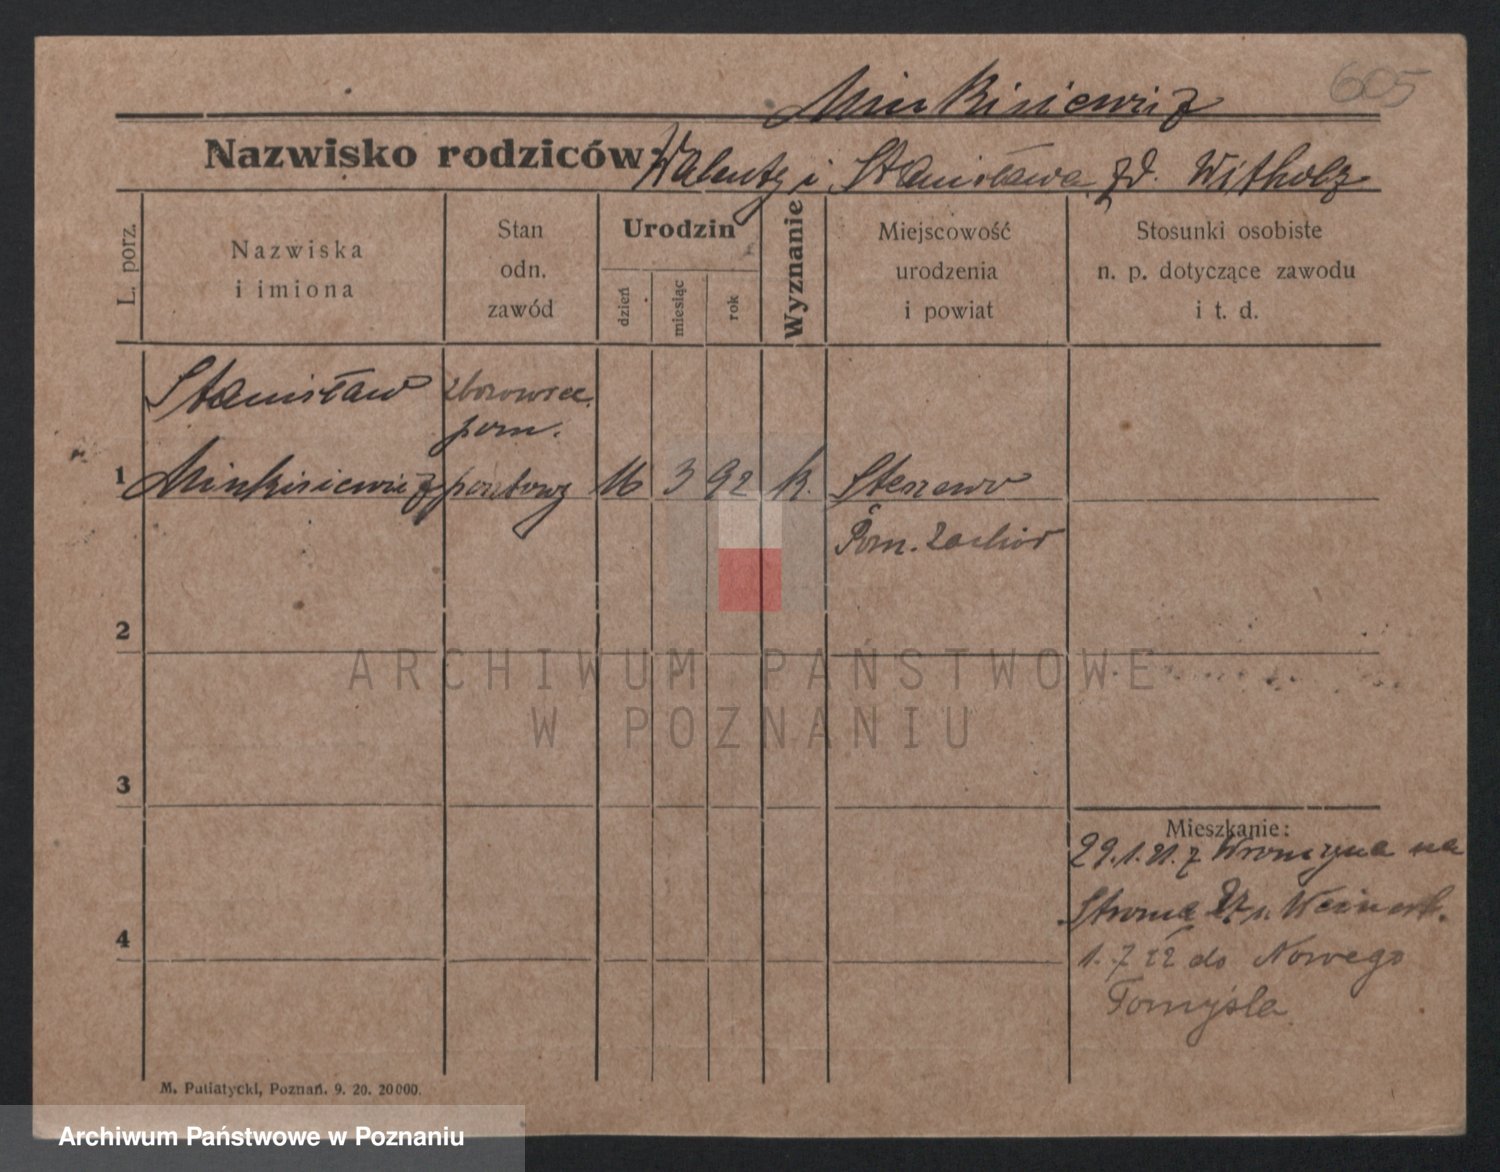 605
Minkisiewicz
Nazwisko rodziców: Walenty i Stanisława zd. Witholz
L. porz.
Nazwiska
i imiona
Stan
odn.
zawód
Urodzin
dzień
miesiąc
rok
Wyznanie
Miejscowość
urodzenia
i powiat
Stosunki osobiste
n. p. dotyczące zawodu
i t. d.
Stanisław
pom.
1 Minkisiewicz pocztowy 16 3 92 k. Stenzewo
Pozn. Zachód
2
ARCHIWUM PAŃSTWOWE
W POZNANIU
3
Mieszkanie:
29.1.21. z Wronczyna na
Stroma 27 u
4
1.7 22 do Nowego
Tomyśla
M. Putiatycki, Poznań. 9. 20. 20000.
Archiwum Państwowe w Poznaniu